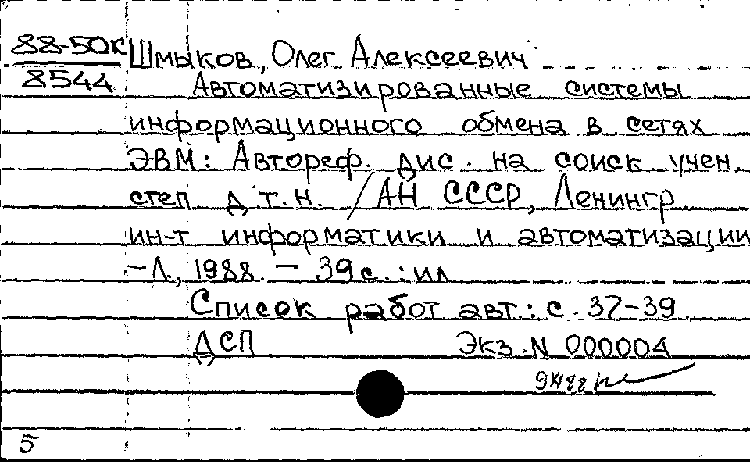 88-50к Шмыков, Олег Алексеевич
8544 Автоматизированные системы
информационного обмена в сетях
ЭВМ: Автореф. дис. на соиск учен.
степ д т.н. /АН СССР, Ленингр
ин-т информатики и автоматизации
-Л, 1988. - 39 с.: ил
Список работ авт.: с. 37-39
ДСП Экз. N 000004
5